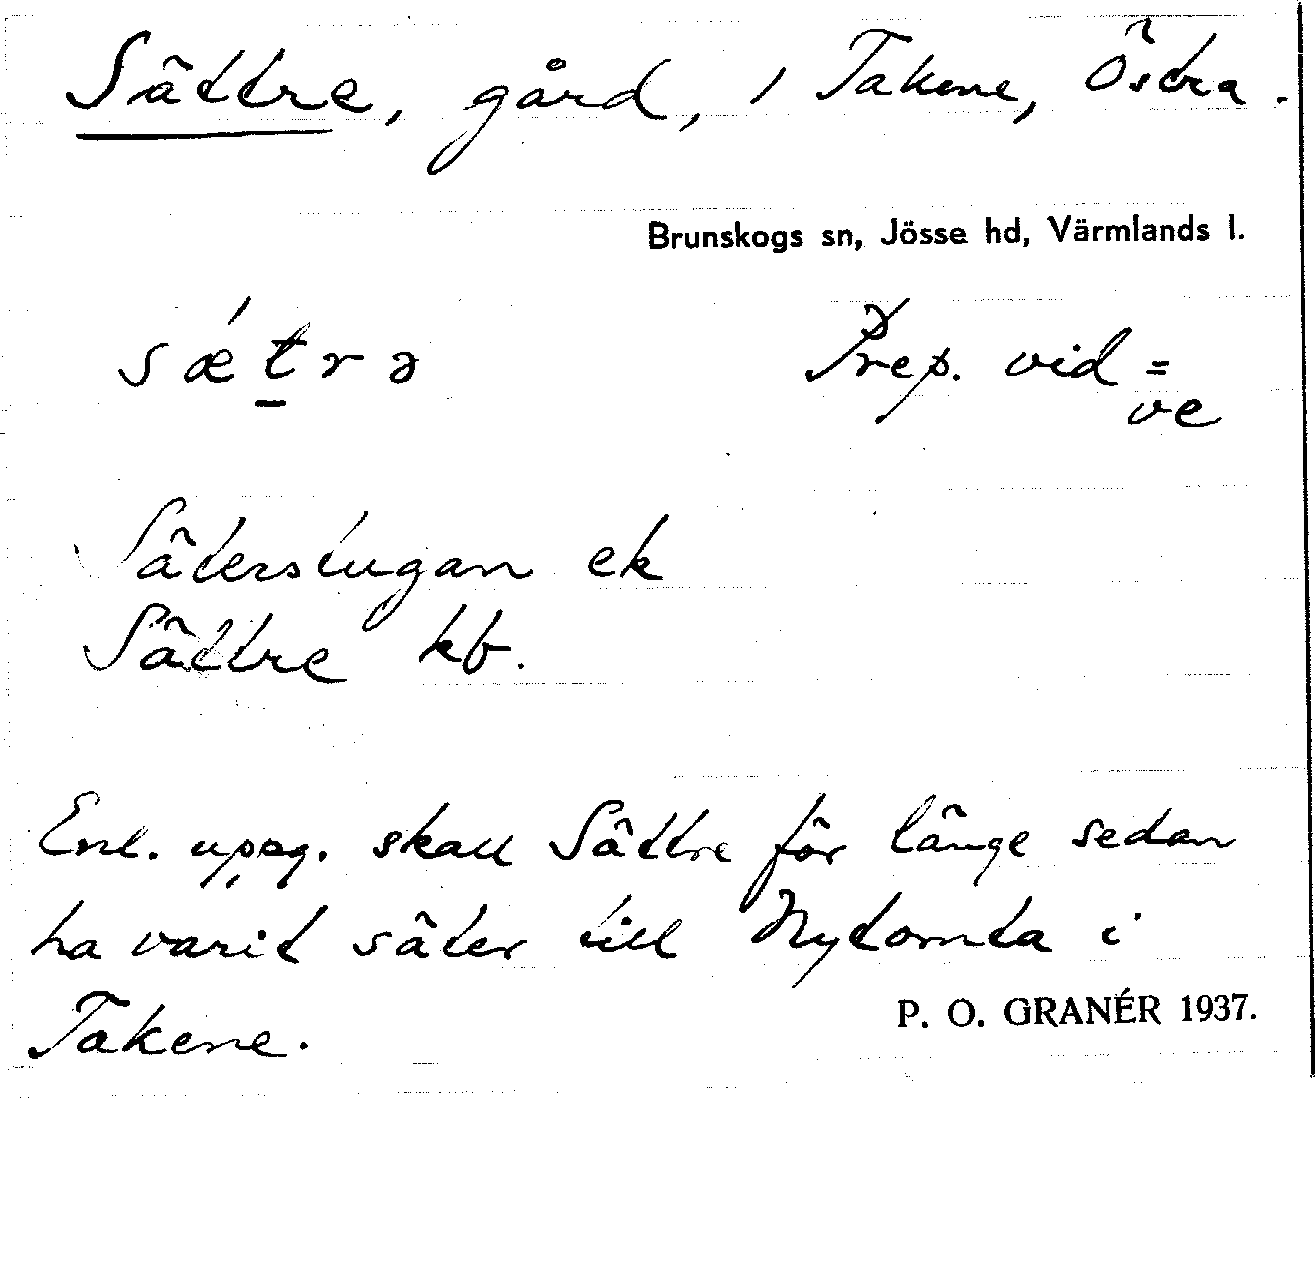 Sättre, gård, 1 Takene, Östra.
Brunskogs sn, Jösse hd, Värmlands l.
sǽt̲rə Prep. vid =
ve
Säterstugan ek
Sättre kb.
Enl. uppg. skall Sättre för länge sedan
ha varit säter till Nytomta i
Takene.
P. O. GRANÉR 1937.